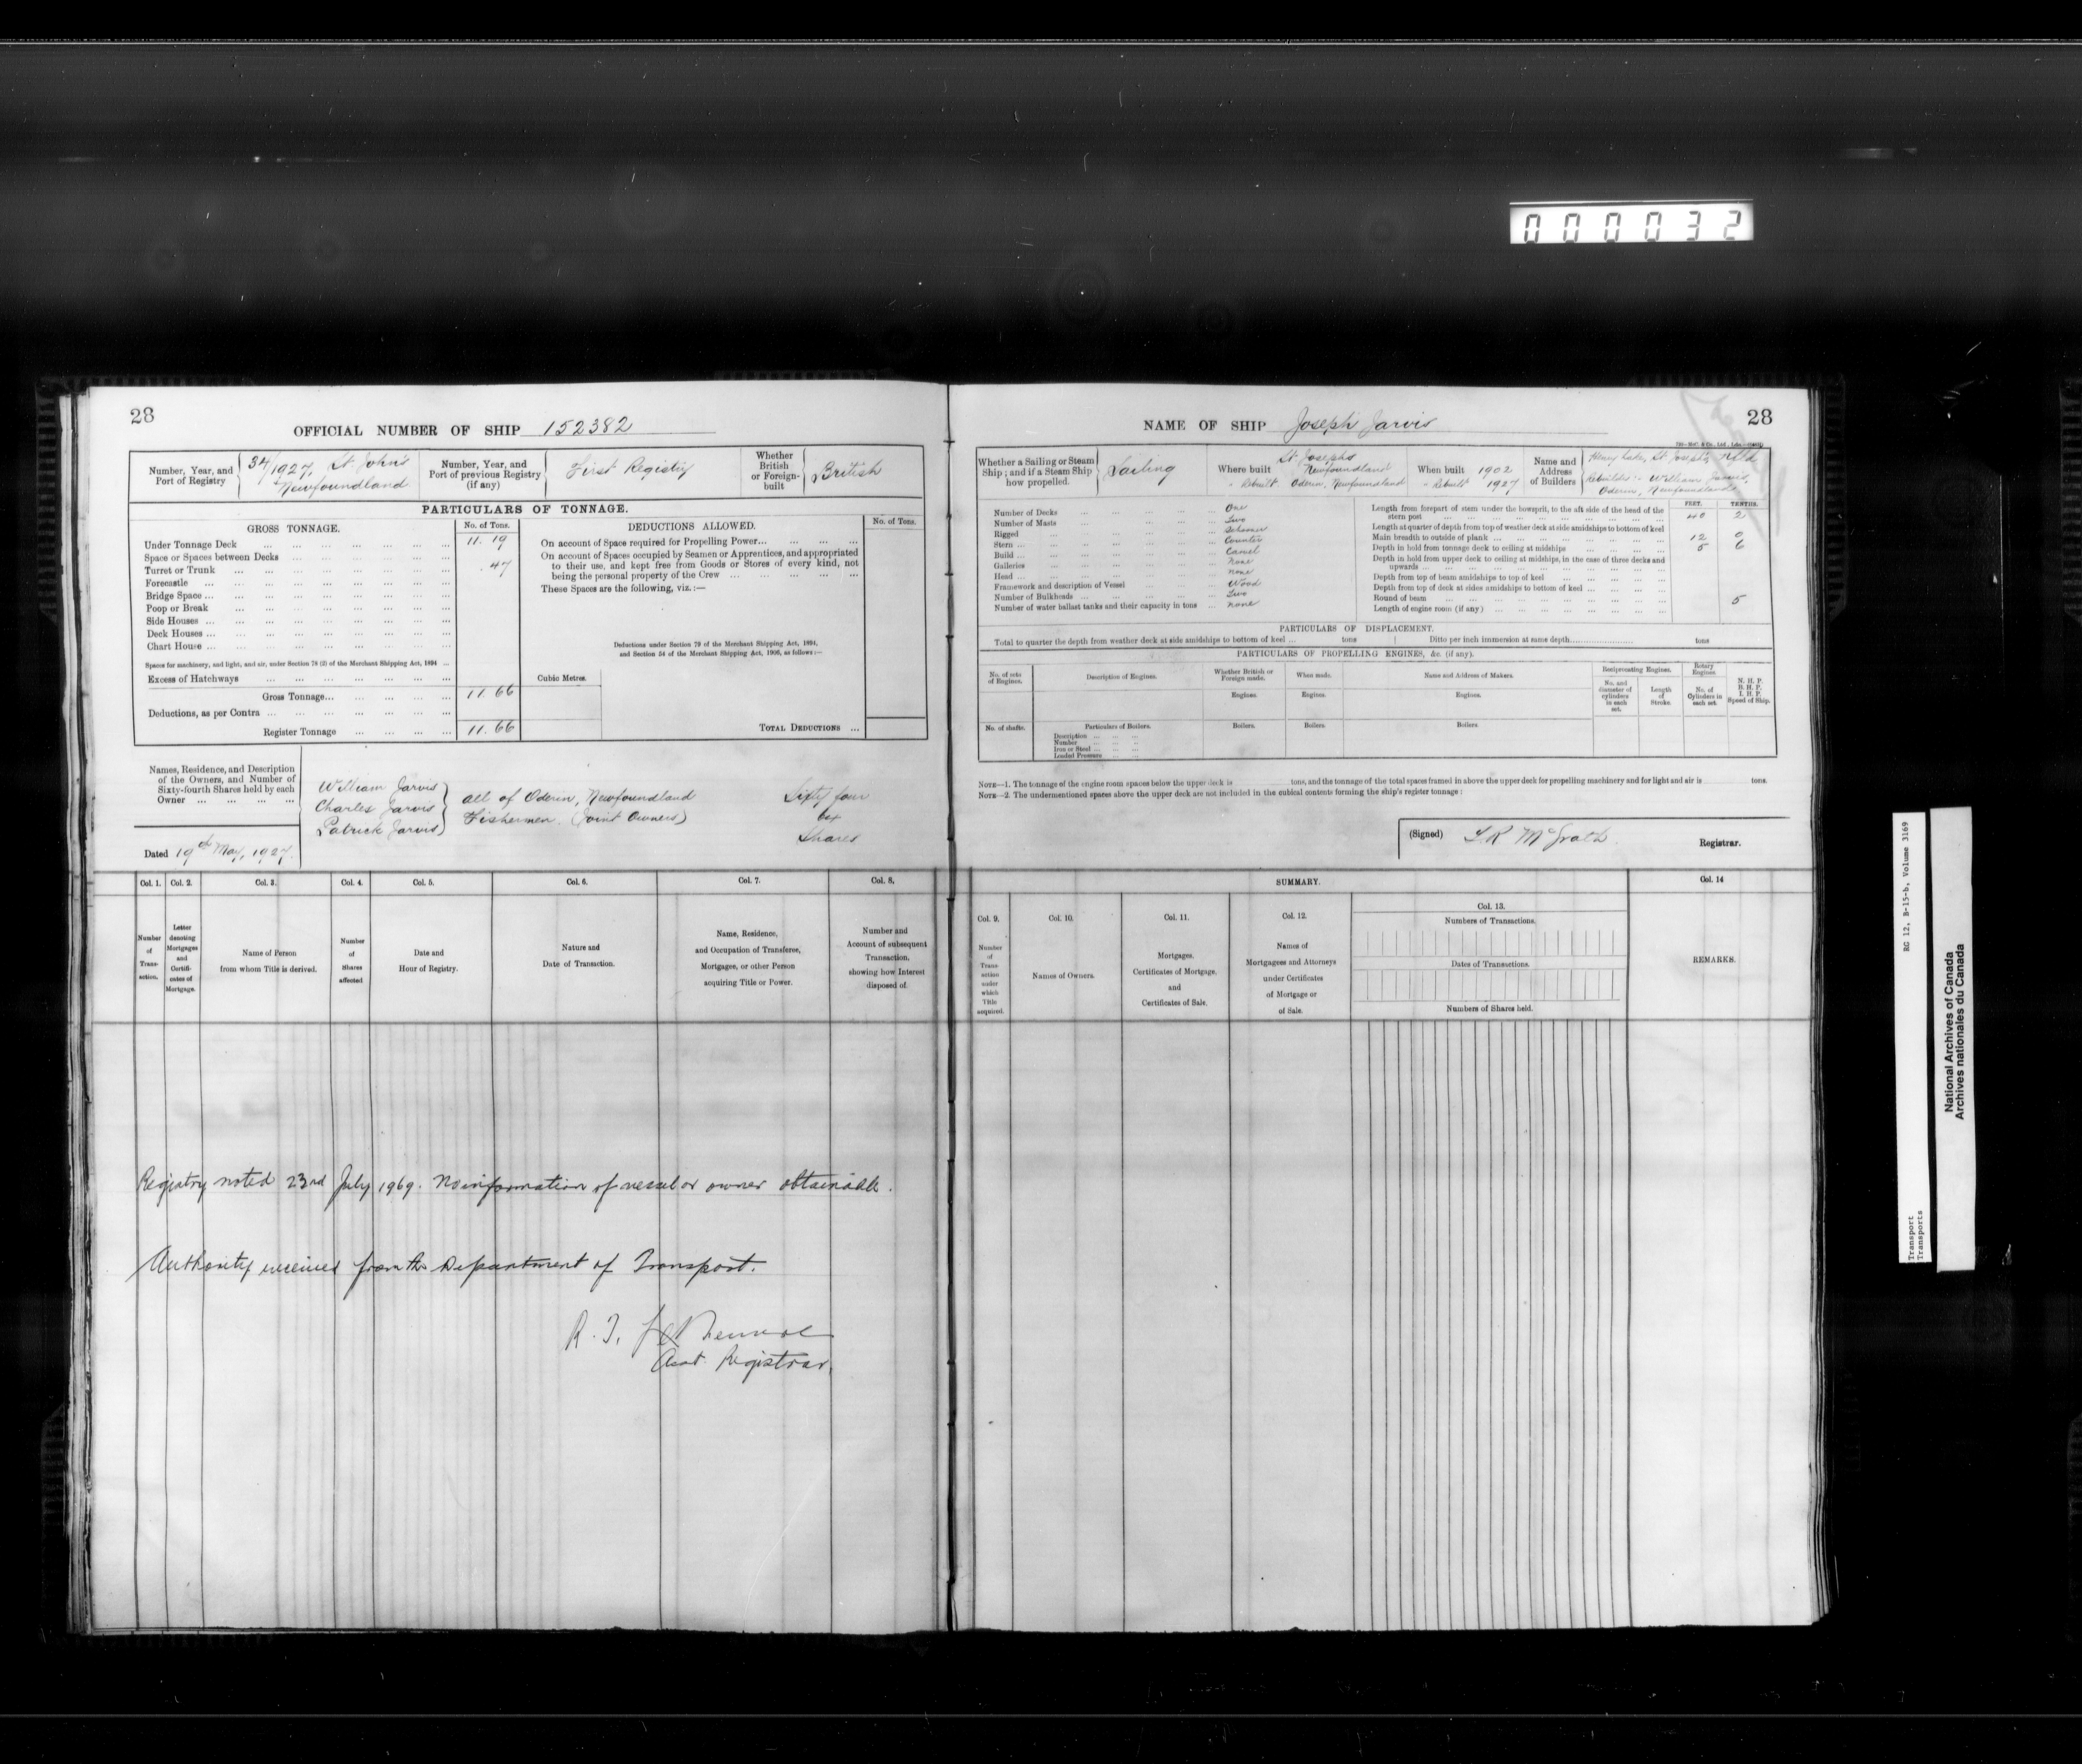 000032
28
OFFICIAL NUMBER OF SHIP 152382
Number, Year, and
Port of Registry
34/1927, St. John's
Newfoundland
Number, Year, and
Port of previous Registry
(if any)
First Registry
Whether
British
or Foreign-
built
British
PARTICULARS OF TONNAGE.
GROSS TONNAGE.
No. of Tons.
Under Tonnage Deck ... 11.19
Space or Spaces between Decks
Turret or Trunk ... .47
Forecastle
Bridge Space
Poop or Break
Side Houses
Deck Houses
Chart House
Spaces for machinery, and light, and air, under Section 78 (2) of the Merchant Shipping Act, 1894 ...
Excess of Hatchways
Gross Tonnage... 11.66
Deductions, as per Contra
Register Tonnage ... 11.66
DEDUCTIONS ALLOWED.
No. of Tons.
On account of Space required for Propelling Power...
On account of Spaces occupied by Seamen or Apprentices, and appropriated
to their use, and kept free from Goods or Stores of every kind, not
being the personal property of the Crew
These Spaces are the following, viz.:—
Deductions under Section 79 of the Merchant Shipping Act, 1894,
and Section 54 of the Merchant Shipping Act, 1906, as follows:—
Cubic Metres.
TOTAL DEDUCTIONS ...
Names, Residence, and Description
of the Owners, and Number of
Sixty-fourth Shares held by each
Owner
William Jarvis
Charles Jarvis
Patrick Jarvis
all of Oderin, Newfoundland
Fishermen. (Joint Owners)
Sixty four
64
Shares
Dated 19th May, 1927.
Col. 1.
Number
of
Trans-
action.
Col. 2.
Letter
denoting
Mortgages
and
Certifi-
cates of
Mortgage.
Col. 3.
Name of Person
from whom Title is derived.
Col. 4.
Number
of
Shares
affected
Col. 5.
Date and
Hour of Registry.
Col. 6.
Nature and
Date of Transaction.
Col. 7.
Name, Residence,
and Occupation of Transferee,
Mortgagee, or other Person
acquiring Title or Power.
Col. 8.
Number and
Account of subsequent
Transaction,
showing how Interest
disposed of.
Registry noted 23rd July 1969. No information of vessel or owner obtainable.
Authority received from the Department of Transport.
R. J.
Asst. Registrar.
NAME OF SHIP Joseph Jarvis
28
Whether a Sailing or Steam
Ship; and if a Steam Ship
how propelled.
Sailing
Where built St. Josephs
Newfoundland
" Rebuilt Oderin, Newfoundland
When built 1902
" Rebuilt 1927
Name and
Address
of Builders
Henry Lake, St Josephs, Nfld
Rebuilder :- William Jarvis,
Oderin, Newfoundland
Number of Decks ... One
Number of Masts ... Two
Rigged ... Schooner
Stern ... Counter
Build ... Carvel
Galleries ... none
Head ... none
Framework and description of Vessel ... Wood
Number of Bulkheads ... Two
Number of water ballast tanks and their capacity in tons ... none
FEET. TENTHS.
Length from forepart of stem under the bowsprit, to the aft side of the head of the
stern post ... 40 2
Length at quarter of depth from top of weather deck at side amidships to bottom of keel
Main breadth to outside of plank ... 12 0
Depth in hold from tonnage deck to ceiling at midships ... 5 6
Depth in hold from upper deck to ceiling at midships, in the case of three decks and
upwards
Depth from top of beam amidships to top of keel
Depth from top of deck at sides amidships to bottom of keel
Round of beam ... 5
Length of engine room (if any)
PARTICULARS OF DISPLACEMENT.
Total to quarter the depth from weather deck at side amidships to bottom of keel ... tons
Ditto per inch immersion at same depth... tons
PARTICULARS OF PROPELLING ENGINES, &c. (if any).
No. of sets
of Engines.
Description of Engines.
Whether British or
Foreign made.
When made.
Name and Address of Makers.
Reciprocating Engines.
Rotary
Engines.
No. and
diameter of
cylinders
in each
set.
Length
of
Stroke.
No. of
Cylinders in
each set.
N. H. P.
B. H. P.
I. H. P.
Speed of Ship.
Engines. Engines. Engines.
No. of shafts.
Particulars of Boilers.
Boilers. Boilers. Boilers.
Description
Number
Iron or Steel
Loaded Pressure
NOTE—1. The tonnage of the engine room spaces below the upper deck is tons, and the tonnage of the total spaces framed in above the upper deck for propelling machinery and for light and air is tons.
NOTE—2. The undermentioned spaces above the upper deck are not included in the cubical contents forming the ship's register tonnage:
(Signed) McGrath
Registrar.
SUMMARY.
Col. 9.
Number
of
Trans-
action
under
which
Title
acquired.
Col. 10.
Names of Owners.
Col. 11.
Mortgages,
Certificates of Mortgage,
and
Certificates of Sale.
Col. 12.
Names of
Mortgagees and Attorneys
under Certificates
of Mortgage or
of Sale.
Col. 13.
Numbers of Transactions.
Dates of Transactions.
Numbers of Shares held.
Col. 14
REMARKS.
RG 12, B-15-b, Volume 3169
Transport
Transports
National Archives of Canada
Archives nationales du Canada